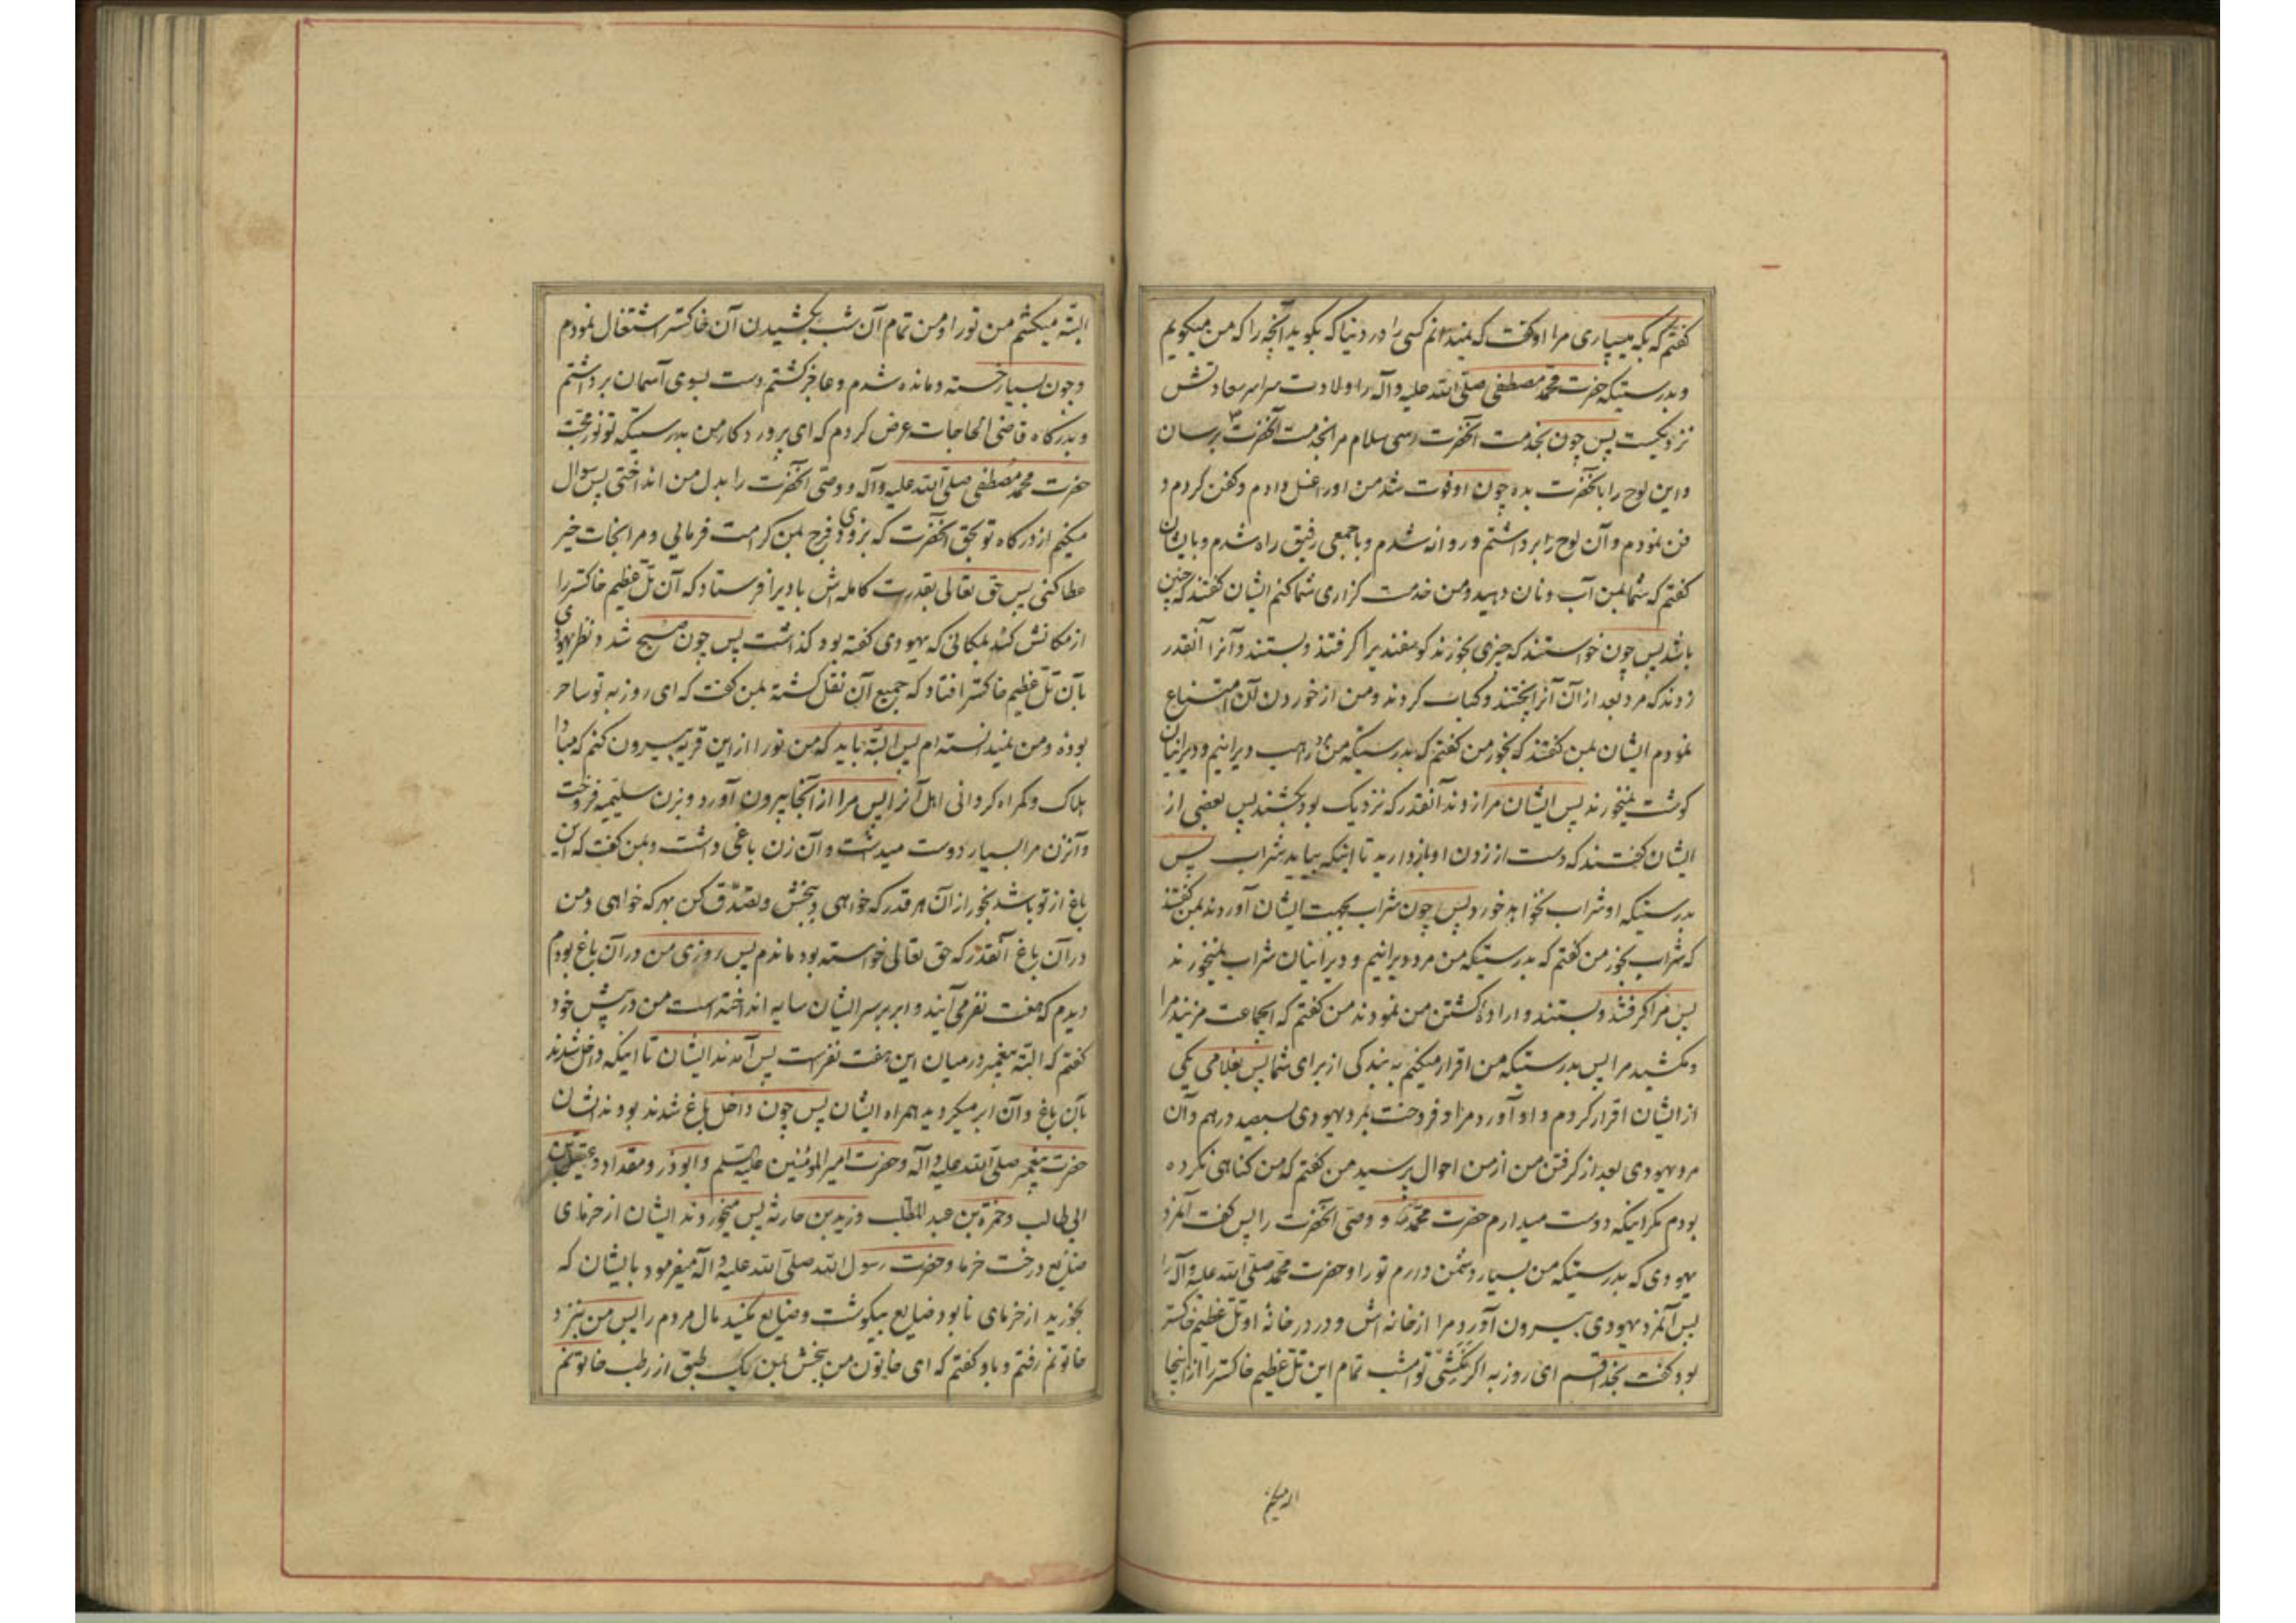 گفتم که بکه میسپاری مرا او گفت که نمیدانم کسی را در دنیا که بگوید آنچه را که من میگویم
و بدرستیکه حضرت محمد مصطفی صلی الله علیه وآله را ولادت سراسر سعادتش
نزدیکست پس چون بخدمت آنحضرت رسی سلام مرا بخدمت آنحضرت برسان
و این لوح را بآنحضرت بده چون او فوت شد من او را غسل دادم و کفن کردم و
فن نمودم و آن لوح را برداشتم و روانه شدم و با جمعی رفیق راه شدم و بایشان
گفتم که شما بمن آب و نان دهید و من خدمت گزاری شما کنم ایشان گفتند که چنین
باشد پس چون خواستند که چیزی بخورند گوسفندیرا گرفتند و بستند و آنرا آنقدر
زدند که مرد بعد از آن آنرا پختند و کباب کردند و من از خوردن آن امتناع
نمودم ایشان بمن گفتند که بخور من گفتم که بدرستیکه من مرد راهب دیرانیم و دیرانیان
گوشت نمیخورند پس ایشان مرا زدند آنقدر که نزدیک بود بکشند پس بعضی از
ایشان گفتند که دست از زدن او بازدارید تا اینکه بیاید شراب پس
بدرستیکه او شراب نخواهد خورد پس چون شراب بجهت ایشان آوردند بمن گفتند
که شراب بخور من گفتم که بدرستیکه من مرد دیرانیم و دیرانیان شراب نمیخورند
پس مرا گرفتند و بستند و اراده کشتن من نمودند من گفتم که ایجماعت مزنید مرا
و مکشید مرا پس بدرستیکه من اقرار میکنم به بندگی از برای شما پس بغلامی یکی
از ایشان اقرار کردم و او آورد مرا و فروخت بمرد یهودی بسیصد درهم و آن
مرد یهودی بعد از گرفتن من از من احوال پرسید من گفتم که من گناهی نکرده
بودم مگر اینکه دوست میدارم حضرت محمد و وصی آنحضرت را پس گفت آنمرد
یهودی که بدرستیکه من بسیار دشمن دارم تو را و حضرت محمد صلی الله علیه وآله را
پس آنمرد یهودی بیرون آورد مرا از خانه اش و در در خانه او تل عظیم خاکستر
بود گفت بخدا قسم ای روزبه اگر نکشی تو امشب تمام این تل عظیم خاکستر را از اینجا
البته میکشم
البته میکشم من تو را و من تمام آن شب بکشیدن آن خاکستر اشتغال نمودم
و چون بسیار خسته و مانده شدم و عاجز گشتم دست بسوی آسمان برداشتم
و بدرگاه قاضی الحاجات عرض کردم که ای پروردگار من بدرستیکه تو نور محبت
حضرت محمد مصطفی صلی الله علیه وآله و وصی آنحضرت را بدل من انداختی پس سوال
میکنم از درگاه تو بحق آنحضرت که بزودی فرج بمن کرامت فرمائی و مرا نجات خیر
عطا کنی پس حق تعالی بقدرت کامله اش بادیرا فرستاد که آن تل عظیم خاکستر را
از مکانش کند بمکانی که یهودی گفته بود گذاشت پس چون صبح شد و نظر یهودی
بآن تل عظیم خاکستر افتاد که جمیع آن نقل گشته بمن گفت که ای روزبه تو ساحر
بوده و من نمیدانسته ام پس البته باید که من تو را از این قریه بیرون کنم که مبادا
هلاک و گمراه گردانی اهل آنرا پس مرا از آنجا بیرون آورد و بزن سلیمیه فروخت
و آنزن مرا بسیار دوست میداشت و آن زن باغی داشت و بمن گفت که این
باغ از تو باشد بخور از آن هر قدر که خواهی و ببخش و تصدق کن بهر که خواهی و من
در آن باغ آنقدر که حق تعالی خواسته بود ماندم پس روزی من در آن باغ بودم
دیدم که هفت نفر می آیند و ابر بر سر ایشان سایه انداخته است من در پیش خود
گفتم که البته پیغمبر در میان این هفت نفرست پس آمدند ایشان تا اینکه داخل شدند
بآن باغ و آن ابر میگردید همراه ایشان پس چون داخل باغ شدند بودند ایشان
حضرت پیغمبر صلی الله علیه وآله و حضرت امیرالمؤمنین علیه السلم و ابوذر و مقداد و عقیل بن
ابی طالب و حمزة بن عبد المطلب و زید بن حارثه پس میخوردند ایشان از خرمای
ضایع درخت خرما و حضرت رسول الله صلی الله علیه وآله میفرمود بایشان که
بخورید از خرمای نابود ضایع بیگوشت و ضایع نکنید مال مردم را پس من بنزد
خاتونم رفتم و باو گفتم که ای خاتون من ببخش بمن یک طبق از رطب خاتونم